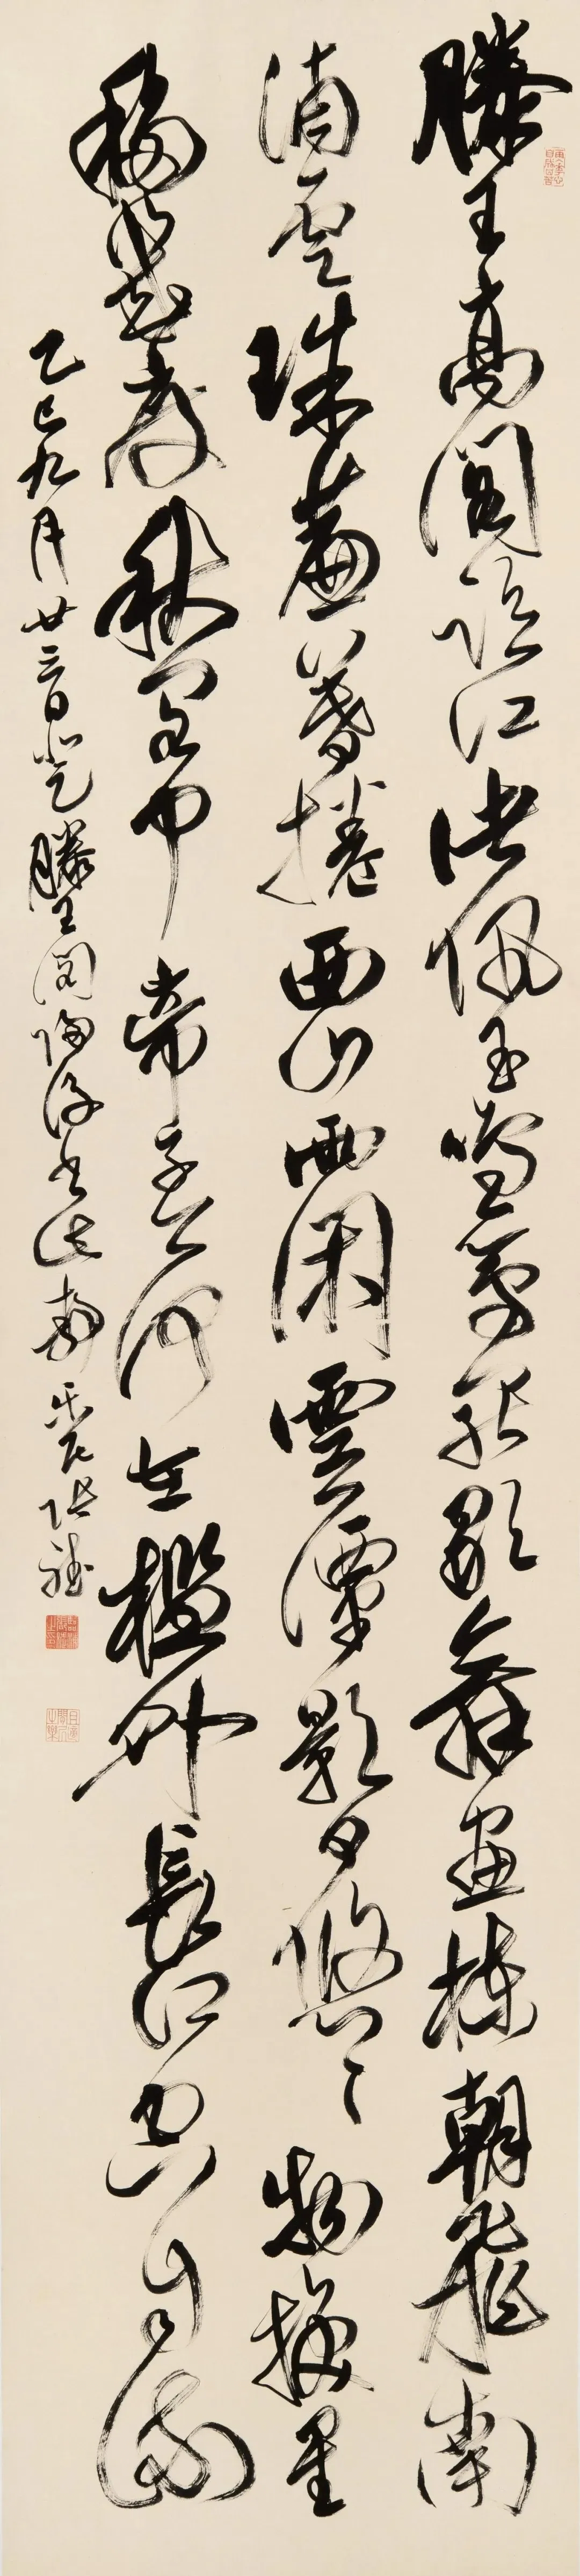 滕王高閣臨江渚佩玉鳴鸞罷歌舞畫棟朝飛南
浦雲珠簾暮捲西山雨閑雲潭影日悠々物換星
移幾度秋閣中帝子今何在檻外長江空自流
乙巳九月廿三日登滕王閣歸後書此